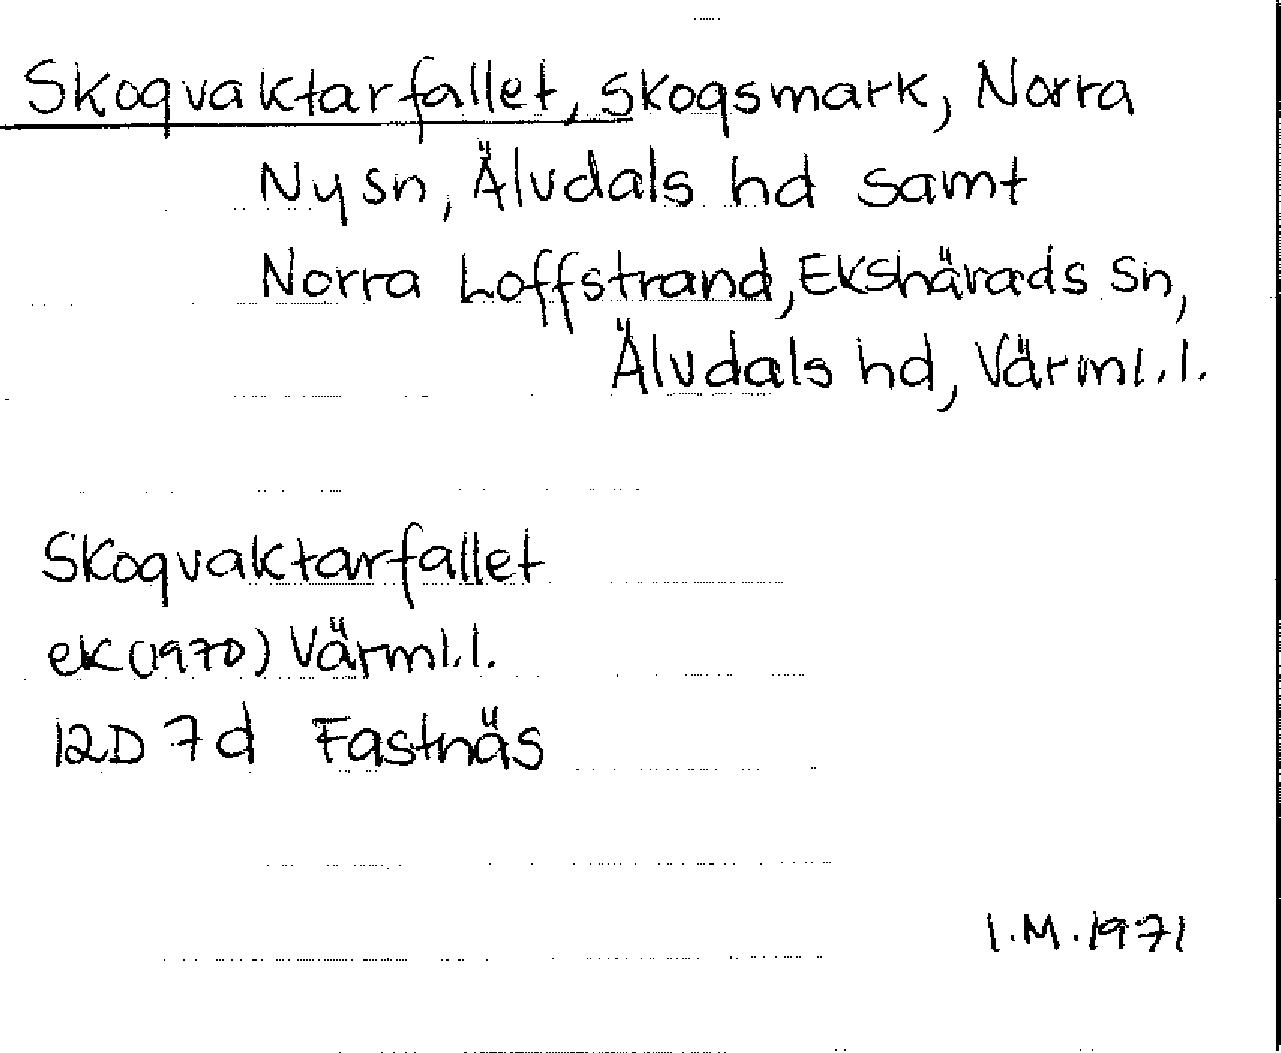 Skogvaktarfallet, skogsmark, Norra
Ny sn, Älvdals hd samt
Norra Loffstrand, Ekshärads sn,
Älvdals hd, Värml.l.
Skogvaktarfallet
ek (1970) Värml.l.
12D 7d Fastnäs
I.M. 1971